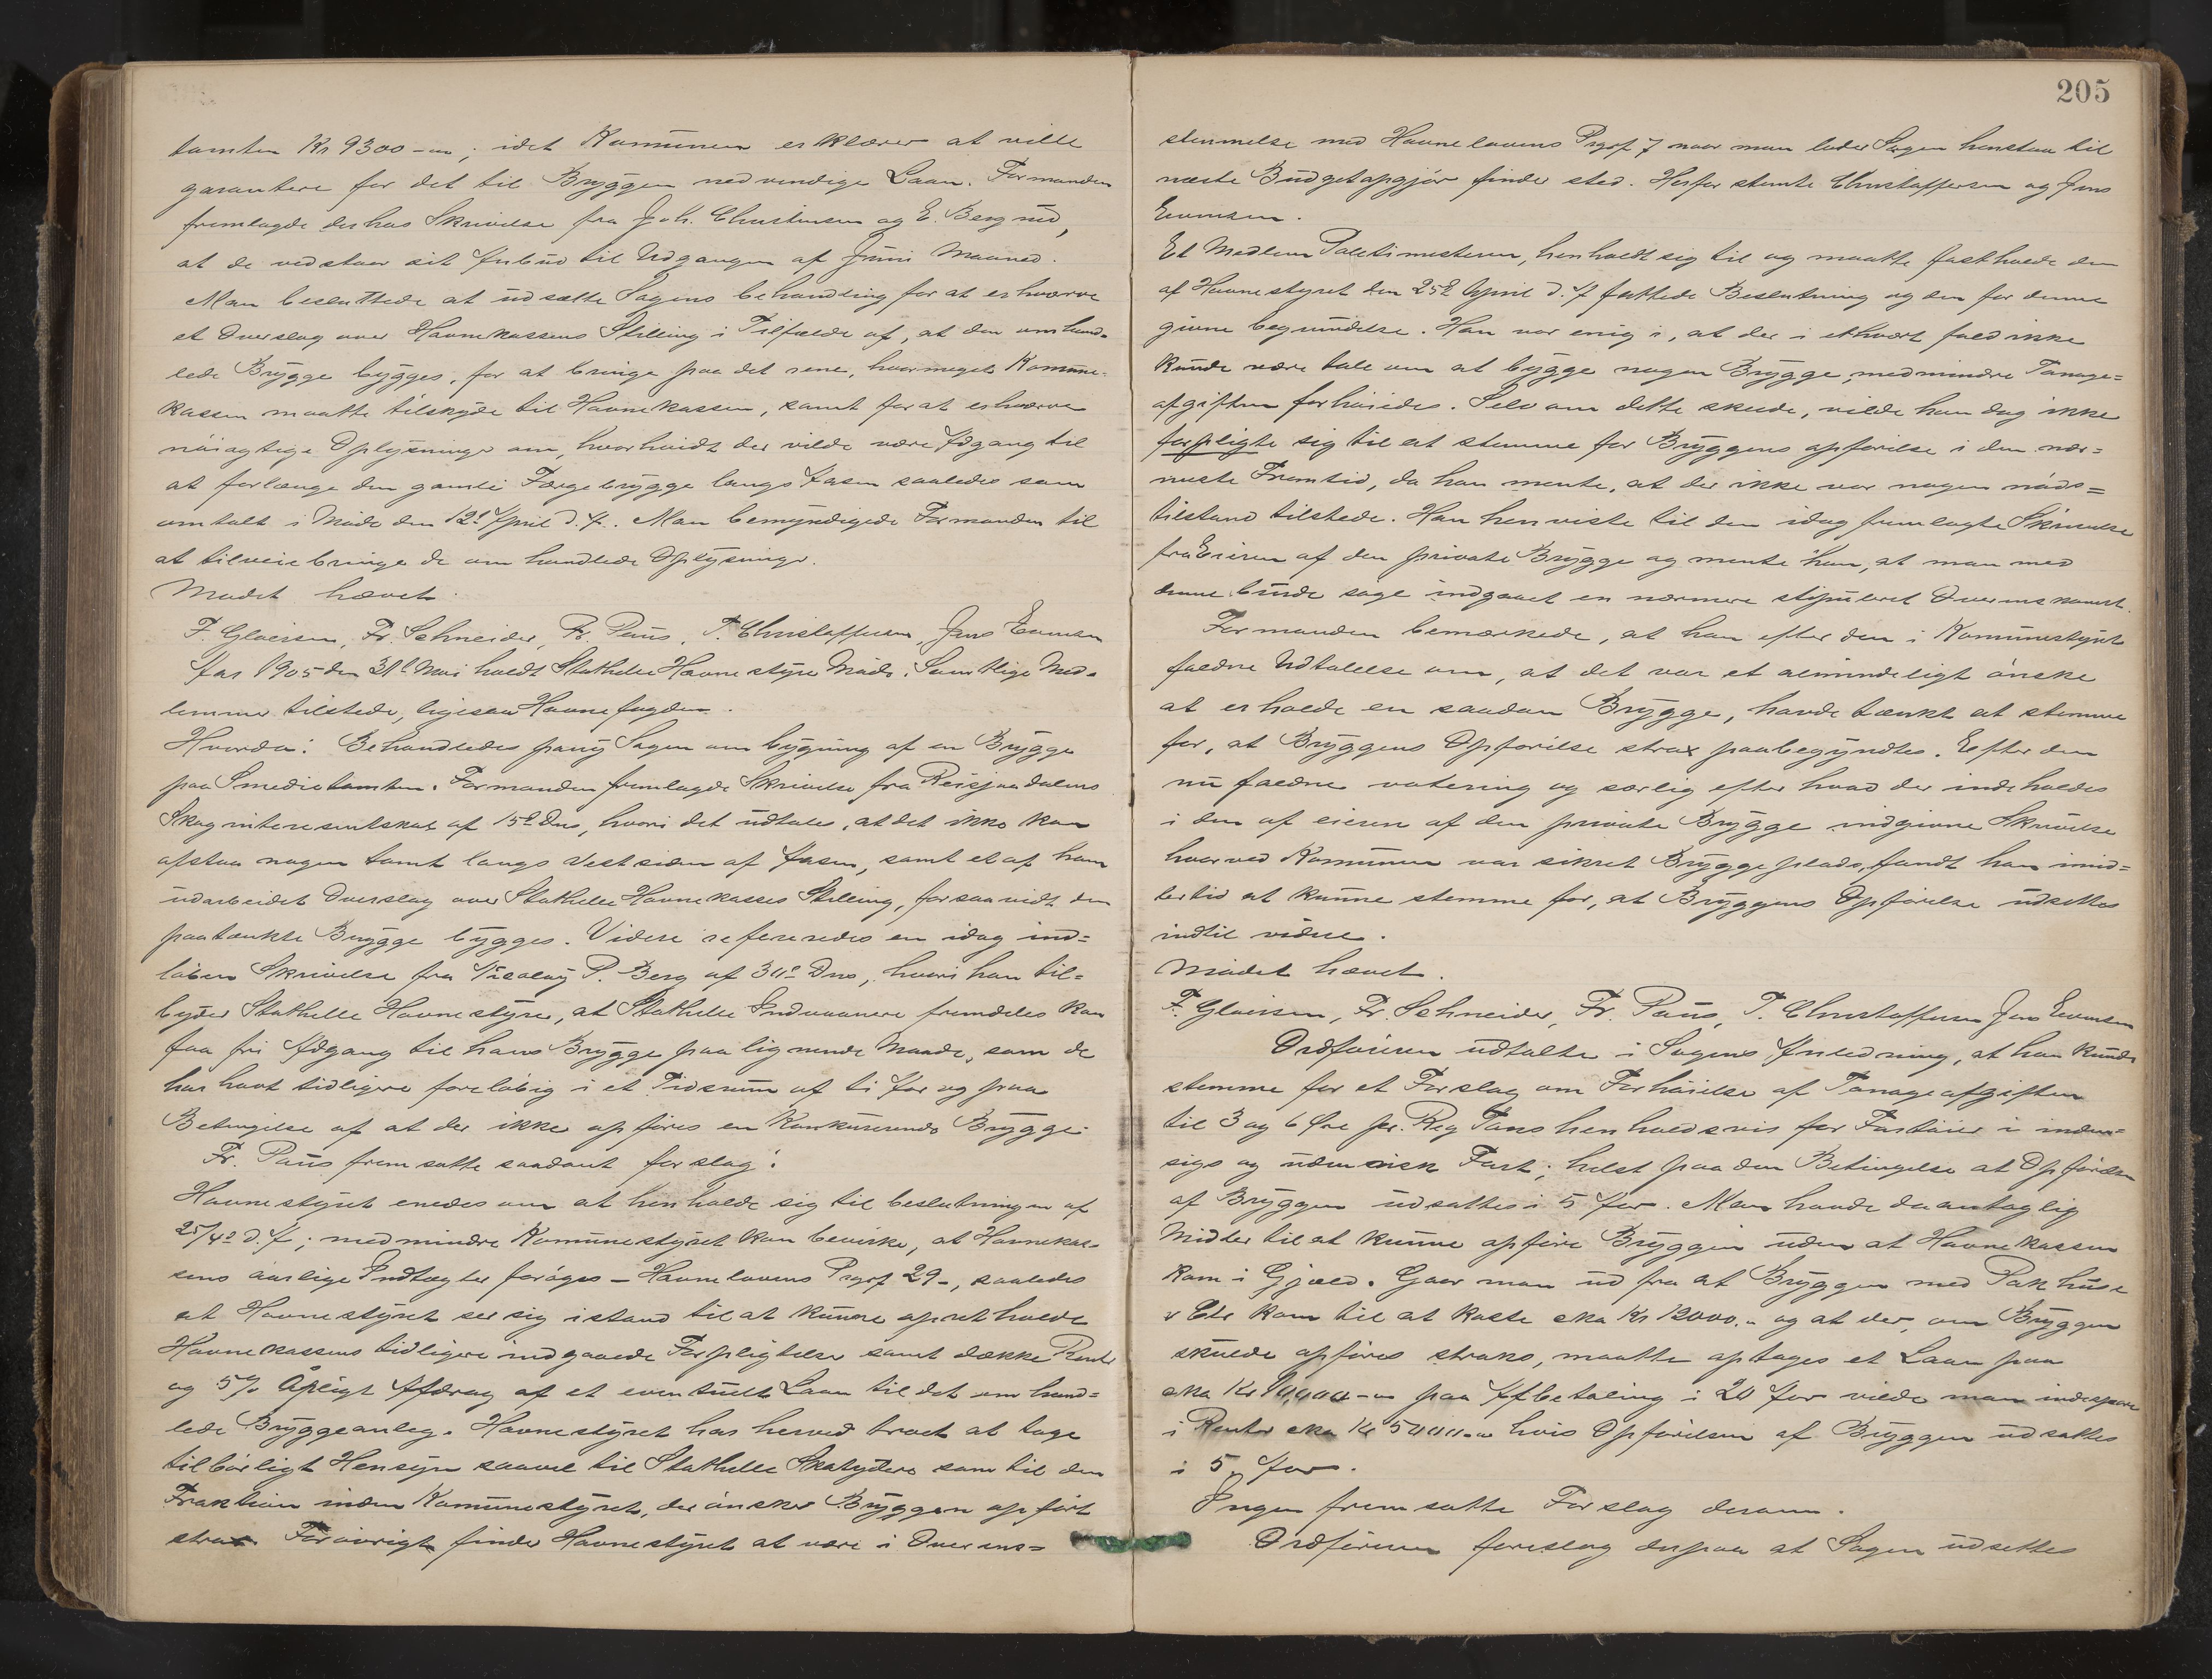 tomten Kr 9300-"; idet Kommunen erklærer at ville
garantere for det til Bryggen nødvendige Laan. Formanden
fremlagde derhos Skrivelse fra Joh. Christensen og E. Berg
at de vedstaar sit Anbud til Udgangen af Juni Maaned.
Man besluttede at udsætte Sagens behandling for at erhverve
et Overslag over Havnekassens Stilling i Tilfælde af, at den omhand-
lede Brygge bygges, for at bringe paa det rene, hvormeget Kommune-
kassen maatte tilskyde til Havnekassen, samt for at erhverve
nøiagtige Oplysninger om, hvorvidt der vilde være Adgang til
at forlænge den gamle Færgebrygge langs Aasen saaledes som
omtalt i Møde den 12te April d. A. Man bemyndigede Formanden til
at tilveiebringe de omhandlede Oplysninger.
Mødet hævet.
F. Gloersen, Fr. Schneider, Fr. Paus, T. Christoffersen, Jens Evensen
Aar 1905 den 31te Mai holdt Stathelle Havnestyre Møde. Samtlige Med-
lemmer tilstede, ligesaa Havnefogden.
Hvorda: Behandledes paany Sagen om bygning af en Brygge
paa Smedietomten. Formanden fremlagde Skrivelse fra Reisjaadalens
Skoginteressentskab af 15de Ds, hvori det udtales, at det ikke kan
afstaa nogen tomt langs Vestsiden af Aasen, samt et af ham
udarbeidet Overslag over Stathelle Havnekasses Stilling, forsaavidt den
paatænkte Brygge bygges. Videre refereredes en idag ind-
løben Skrivelse fra Nicolay P. Berg af 30te Ds, hvori han til-
byder Stathelle Havnestyre, at Stathelle Indvaanere fremdeles kan
faa fri Adgang til hans Brygge paa lignende Maade, som de
har havt tidligere foreløbig i et Tidsrum af ti Aar og paa
Betingelse af at der ikke opføres en konkurerende Brygge.
Fr. Paus fremsatte saadant forslag:
Havnestyret enedes om at henholde sig til beslutningen af
25/4 d. A; medmindre Kommunestyret kan bevirke, at Havnekas-
sens aarlige Indtægter forøges – Havnelovens Prgrf 29 –, saaledes
at Havnestyret ser sig istand til at kunne opretholde
Havnekassens tidligere indgaaede Forpligtelser samt dække Renter
og 5% Afdrag af et eventuelt Laan til det omhand-
lede Bryggeanlæg. Havnestyret har herved troet at tage
tilbørligt Hensyn saavel til Stathelle Skatydere som til den
Fraktion inden Kommunestyret, der ønsker Bryggen opført
strax. Forøvrigt finder Havnestyret at være i Overens-
205
stemmelse med Havnelovens Prgrf 7 naar man lader Sagen henstaa til
næste Budgetopgjør finder sted. Herfor stemte Christoffersen og Jens
Evensen.
Et Medlem Politimesteren, henholdt sig til og maatte fastholde den
af Havnestyret den 25de April d. A fattede Beslutning og den for denne
givne begrundelse. Han var enig i, at der i ethvert fald ikke
kunde være tale om at bygge nogen Brygge, medmindre Tonage-
afgiften forhøiedes. Selv om dette skede, vilde han dog ikke
forpligte sig til at stemme for Bryggens opførelse i den nær-
meste Fremtid, da han mente, at der ikke var nogen nøds-
tilstand tilstede. Han henviste til den idag fremlagte Skrivelse
fra Eieren af den private Brygge og mente han, at man med
denne burde søge indgaaet en nærmere stipuleret Overenskomst.
Formanden bemærkede, at han efter den i Kommunestyret
faldne Udtalelse om, at det var et almindeligt ønske
at erholde en saadan Brygge, havde tænkt at stemme
for, at Bryggens Opførelse strax paabegyndtes. Efter den
nu faldne votering og særlig efter hvad der indeholdes
i den af eieren af den private Brygge indgivne Skrivelse
hvorved Kommunen var sikret Bryggeplads, fandt han imid-
lertid at kunne stemme for, at Bryggens Opførelse udsættes
indtil videre.
Mødet hævet.
F. Gloersen, Fr. Schneider, Fr. Paus, T. Christoffersen Jens Evensen
Ordføreren udtalte i Sagens Anledning, at han kunde
stemme for et Forslag om Forhøielse af Tonageafgiften
til 3 og 6 Øre pr. Reg Tons henholdsvis for Fartøier i inden-
rigs og udenrisk Fart; helst paa den Betingelse at Opførelsen
af Bryggen udsattes i 5 Aar. Man havde da antagelig
Midler til at kunne opføre Bryggen uden at Havnekassen
kom i Gjæld. Gaar man ud fra at Bryggen med Pakhuse
Etc kom til at koste cka Kr 12000.- og at der, om Bryggen
skulde opføres straks, maatte optages et Laan paa
cka Kr 10,000-" paa Afbetaling i 20 Aar vilde man indespare
i Renter cka Kr 5000.- hvis Opførelsen af Bryggen udsattes
i 5 Aar.
Ingen fremsatte Forslag derom.
Ordføreren foreslog derpaa at Sagen udsættes